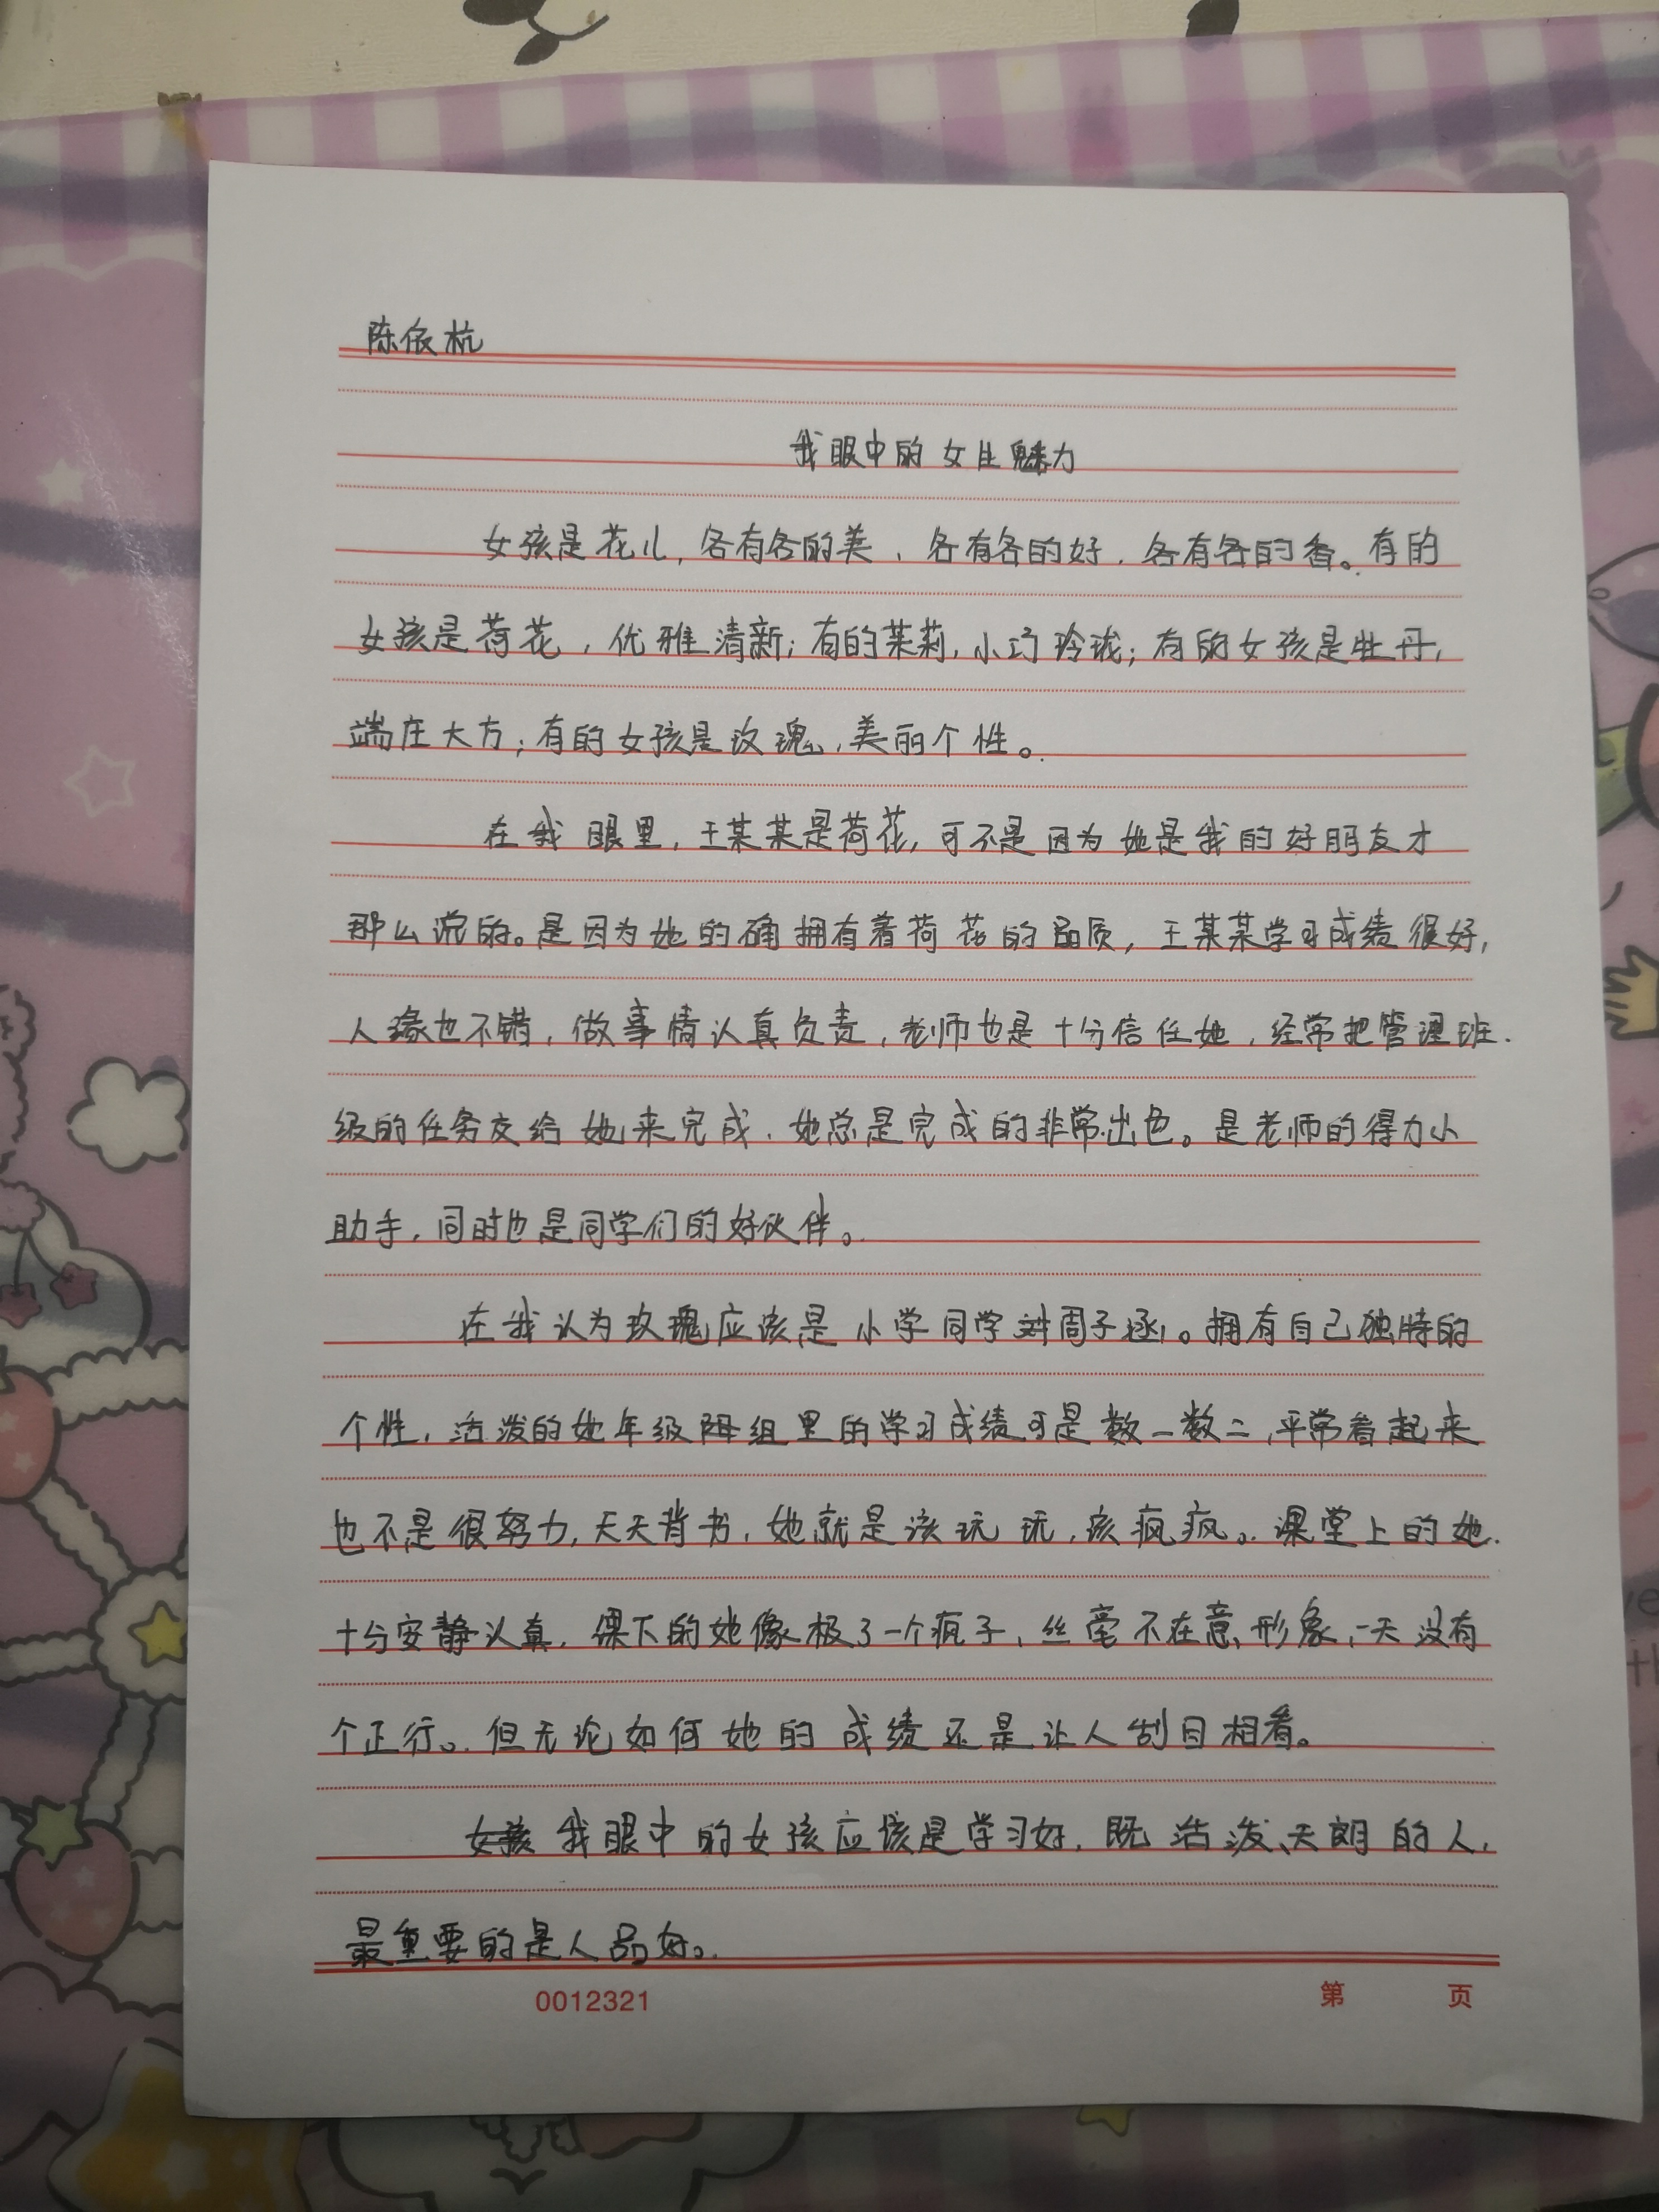 陈依杭
我眼中的女生魅力
女孩是花儿，各有各的美，各有各的好，各有各的香。有的
女孩是荷花，优雅清新；有的茉莉，小巧玲珑；有的女孩是牡丹，
端庄大方；有的女孩是玫瑰，美丽个性。
在我眼里，王某某是荷花，可不是因为她是我的好朋友才
那么说的。是因为她的确拥有着荷花的品质，王某某学习成绩很好，
人缘也不错，做事情认真负责，老师也是十分信任她，经常把管理班
级的任务交给她来完成，她总是完成的非常出色。是老师的得力小
助手，同时也是同学们的好伙伴。
在我认为玫瑰应该是小学同学周子。拥有自己独特的
个性，活泼的她年级组里的学习成绩可是数一数二，平常看起来
也不是很努力，天天背书，她就是该玩玩，该疯疯。课堂上的她
十分安静认真，课下的她像极了一个疯子，丝毫不在意形象，一天没有
个正行。但无论如何她的成绩还是让人刮目相看。
我眼中的女孩应该是学习好，既活泼、天朗的人，
最重要的是人品好。
0012321 第 页